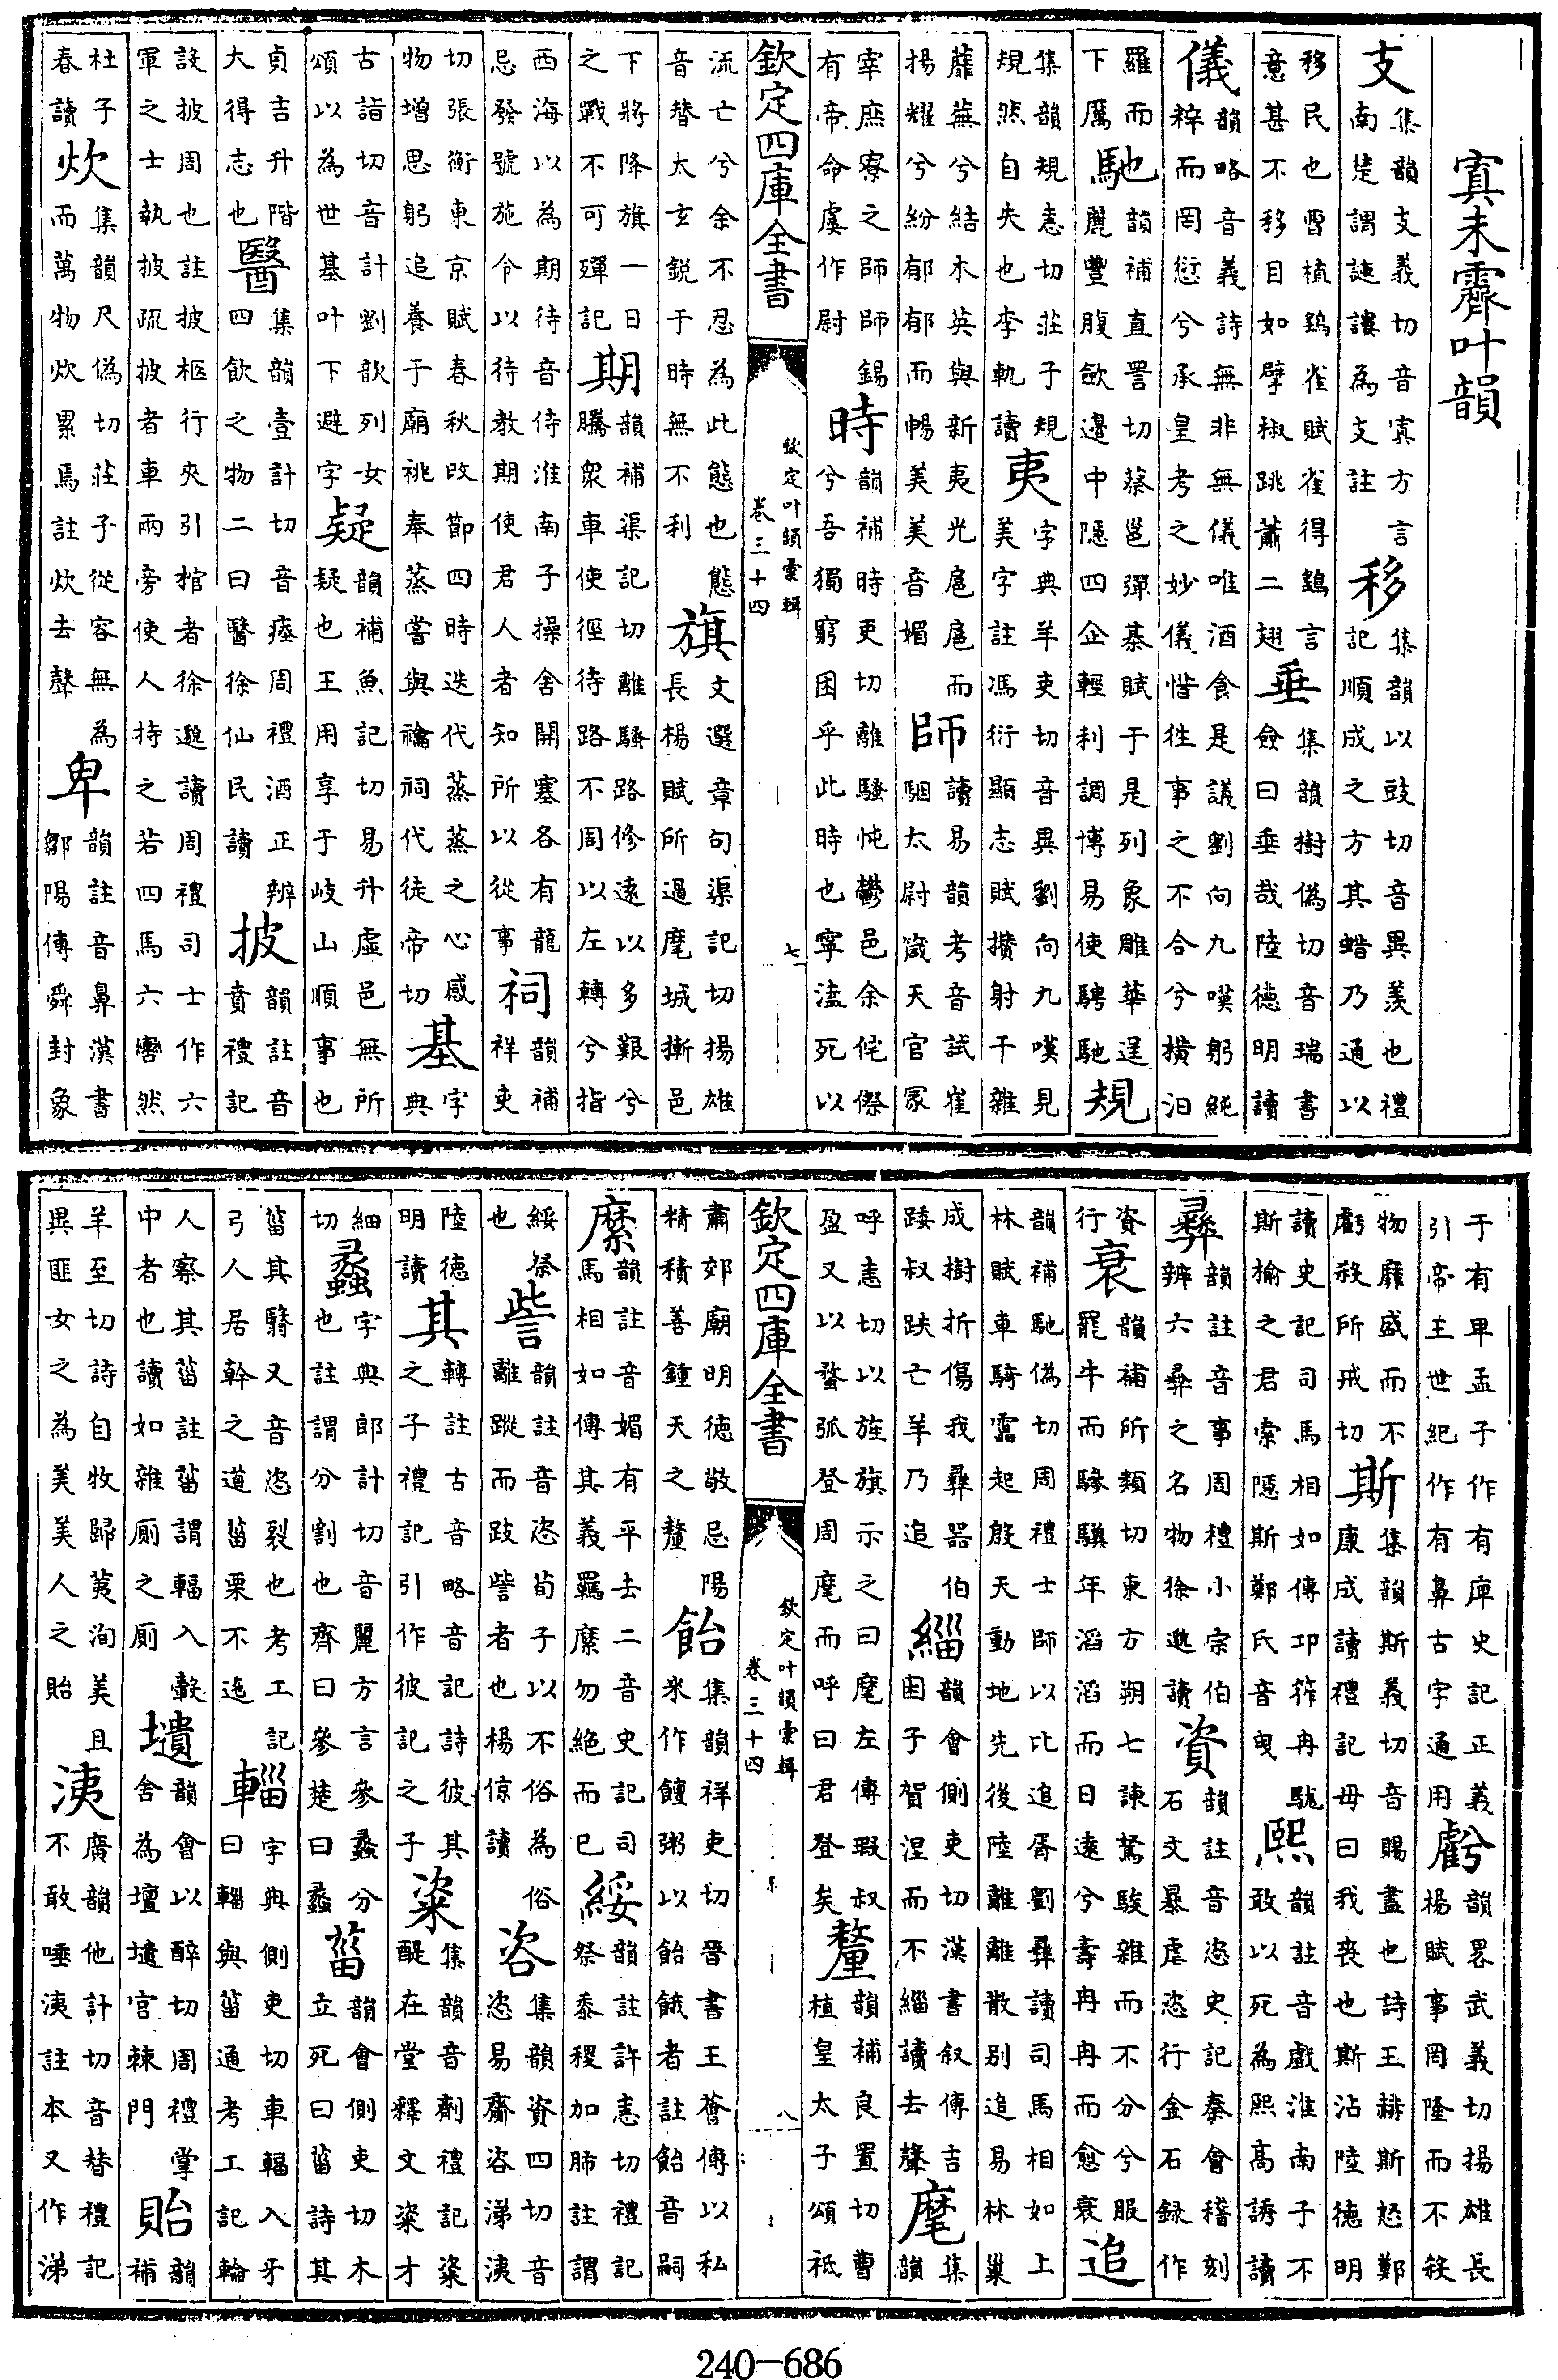 寘未霽叶韻
支集韻支義切音寘方言南楚謂譴謱為支註移集韻以豉切音異羨也禮記順成之方其蜡乃通以
移民也曹植鷂雀賦雀得鷂言意甚不移目如擘椒跳蕭二翅垂集韻樹偽切音瑞書僉曰垂哉陸德明讀
儀韻略音義詩無非無儀唯酒食是議劉向九嘆躬純粹而罔愆兮承皇考之妙儀惜徃事之不合兮橫汨
羅而下厲馳韻補直詈切蔡邕彈棊賦于是列象雕華逞麗豐腹歛邉中隱四企輕利調博易使騁馳規
集韻規恚切莊子規規然自失也李軌讀夷字典羊吏切音異劉向九嘆見美字註馮衍顯志賦攢射干雜
蘼蕪兮結木英與新夷光扈扈而揚耀兮紛郁郁而暢美美音媚師讀易韻考音試崔駰太尉箴天官冢
宰庶寮之師師錫有帝命虞作尉時韻補時吏切離騷忳鬱邑余侘傺兮吾獨窮困乎此時也寧溘死以
欽定四庫全書 欽定叶韻彙輯 卷三十四 七
流亡兮余不忍為此態也態音替太玄鋭于時無不利旗文選章句渠記切揚雄長楊賦所過麾城摲邑
下將降旗一日之戰不可殫記期韻補渠記切離騷路修遠以多艱兮騰衆車使徑待路不周以左轉兮指
西海以為期待音侍淮南子操舍開塞各有龍忌發號施令以待教期使君人者知所以從事祠韻補祥吏
切張衡東京賦春秋改節四時迭代蒸蒸之心感物增思躬追養于廟祧奉蒸嘗與禴祠代徒帝切基字典
古詣切音計劉歆列女頌以為世基叶下避字疑韻補魚記切易升虛邑無所疑也王用享于岐山順事也
貞吉升階大得志也醫集韻壹計切音瘞周禮酒正辨四飲之物二曰醫徐仙民讀披韻註音賁禮記
設披周也註披柩行夾引棺者徐邈讀周禮司士作六軍之士執披疏披者車兩旁使人持之若四馬六轡然
杜子春讀炊集韻尺偽切莊子從容無為而萬物炊累焉註炊去聲卑韻註音鼻漢書鄒陽傳舜封象
于有卑孟子作有庳史記正義引帝王世紀作有鼻古字通用虧韻畧武義切揚雄長楊賦事罔隆而不殺
物靡盛而不虧殺所戒切斯集韻斯義切音賜盡也詩王赫斯怒鄭康成讀禮記毋曰我喪也斯沾陸德明
讀史記司馬相如傳卭筰冉駹斯榆之君索隱斯鄭氏音曳熙韻註音戲淮南子不敢以死為熙高誘讀
彝韻註音事周禮小宗伯辨六彝之名物徐邈讀資韻註音恣史記秦會稽刻石文暴虐恣行金石録作
資行衰韻補所類切東方朔七諫駑駿雜而不分兮服罷牛而驂驥年滔滔而日遠兮壽冉冉而愈衰追
韻補馳偽切周禮士師以比追胥劉彝讀司馬相如上林賦車騎靁起殷天動地先後陸離離散别追易林巢
成樹折傷我彝器伯踒叔跌亡羊乃追緇韻會側吏切漢書叙傳吉困子賀涅而不緇讀去聲麾集韻
呼恚切以旌旗示之曰麾左傳瑕叔盈又以蝥弧登周麾而呼曰君登矣釐韻補良置切曹植皇太子頌祗
欽定四庫全書 欽定叶韻彙輯 卷三十四 八
肅郊廟明德敬忌陽精積善鍾天之釐飴集韻祥吏切晉書王薈傳以私米作饘粥以飴餓者註飴音嗣
縻韻註音媚有平去二音史記司馬相如傳其義羈縻勿絶而已綏韻註許恚切禮記祭黍稷加肺註謂
綏祭也訾韻註音恣荀子以不俗為俗離蹤而跂訾者也楊倞讀咨集韻資四切音恣易齎咨涕洟
陸德明讀其轉註古音略音記詩彼其之子禮記引作彼記之子粢集韻音劑禮記粢醍在堂釋文粢才
細切蠡字典郎計切音麗方言參蠡分也註謂分割也齊曰參楚曰蠡菑韻會側吏切木立死曰菑詩其
菑其翳又音恣裂也考工記弓人居幹之道菑栗不迤輜字典側吏切車輻入牙曰輜與菑通考工記輪
人察其菑註菑謂輻入轂中者也讀如雜厠之厠壝韻會以醉切周禮掌舍為壇壝宮棘門貽韻補
羊至切詩自牧歸荑洵美且異匪女之為美美人之貽洟廣韻他計切音替禮記不敢唾洟註本又作涕
240-686